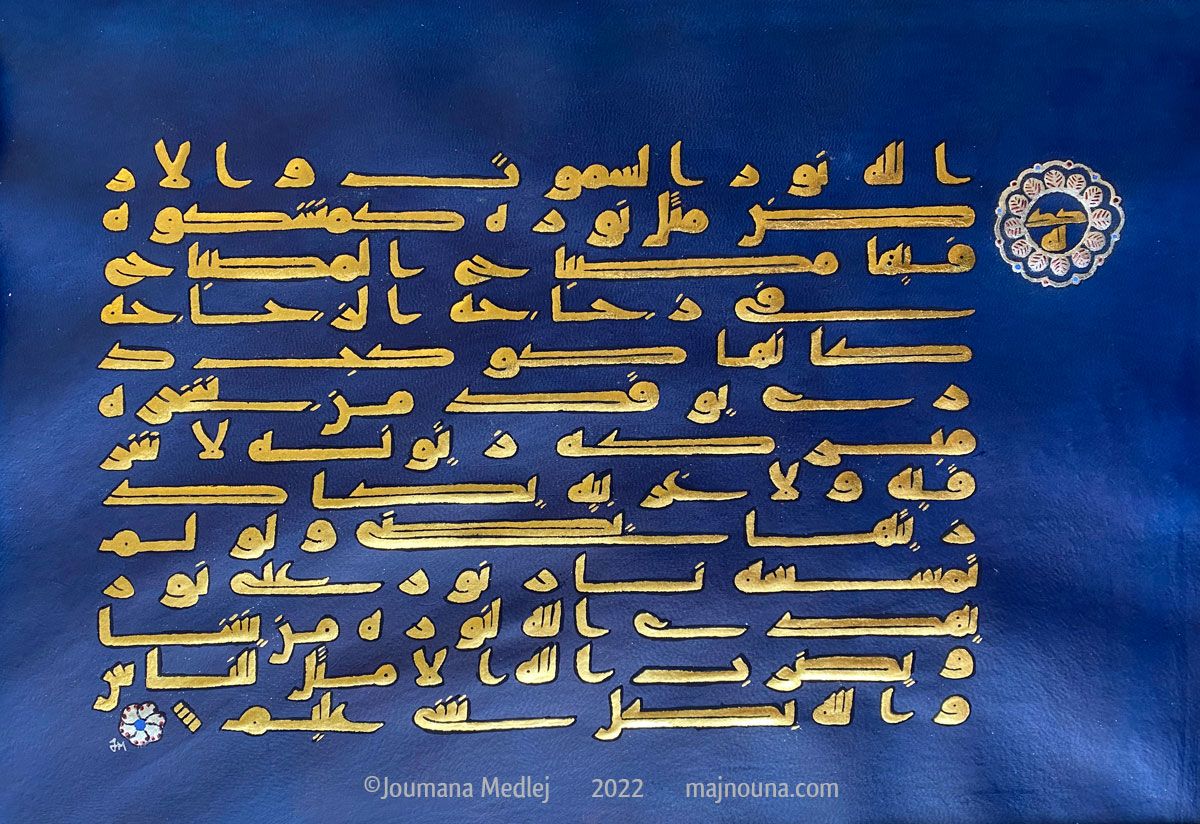 الله نور السموت والار
ض مثل نوره كمشكوه
فيها مصباح المصباح
في زجاجه الزجاجه
كانها كوكب د
ري يوقد من شجره
مبركه زيتونه لا شر
قيه ولا غربيه يكاد
زيتها يضى ولو لم
تمسسه نار نور على نور
يهدي الله لنوره من يشا
ويضرب الله الامثل للناس
والله بكل شي عليم
كد
له
JM
©Joumana Medlej 2022 majnouna.com